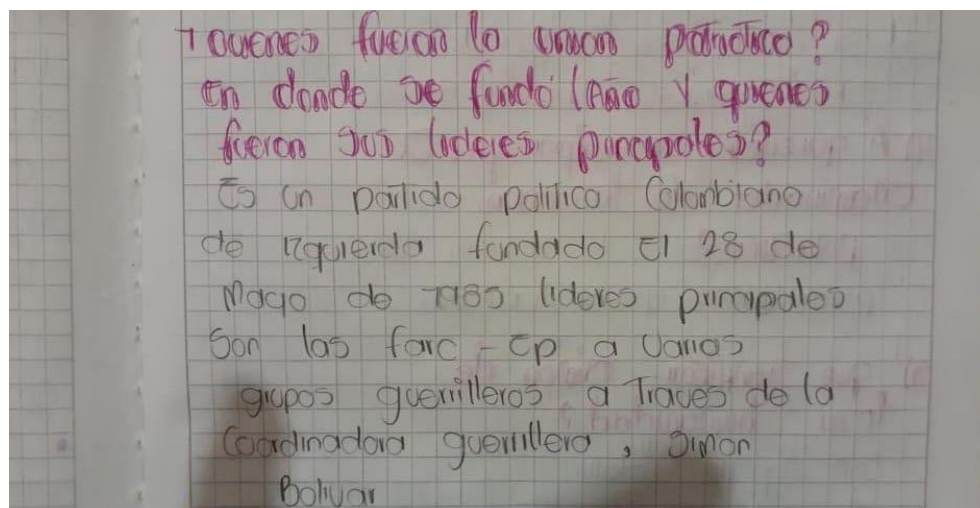 1 Quienes fueron la union patriotica?
En donde se fundó (Año y quienes
fueron sus lideres principales?
Es un partido politico Colombiano
de izquierda fundado El 28 de
Mayo de 1985 lideres principales
Son las farc - Ep a varios
grupos guerrilleros a Traves de la
Coordinadora guerrillera, Simon
Bolivar